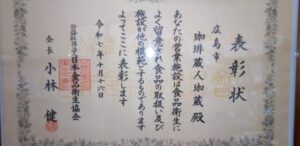 表彰状
広島市
珈琲蔵人珈蔵殿
あなたの営業施設は食品衛生に
よく留意され食品の取扱い及び
施設が他の模範とするものであります
よってここに表彰します
令和七年十月十六日
公益社団法人日本食品衛生協会
会長 小林 健